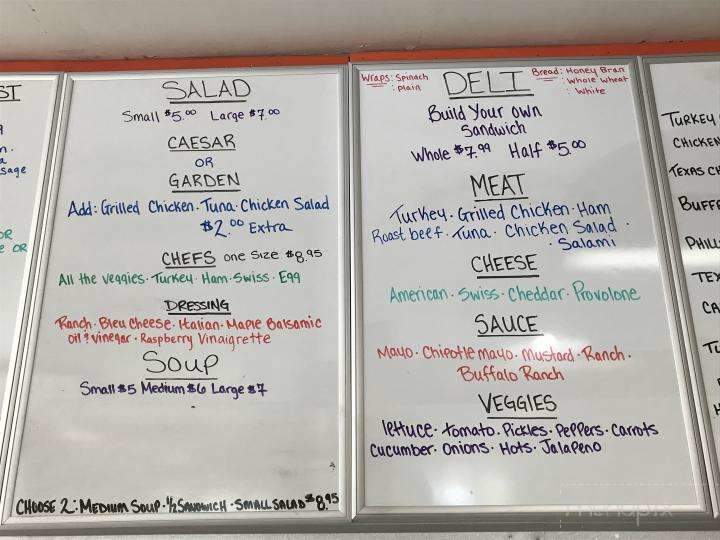 ST
sage
OR
E OR
SALAD
Small $5.00 Large $7.00
CAESAR
OR
GARDEN
Add: Grilled Chicken · Tuna · Chicken Salad
$2.00 Extra
CHEFS one Size $8.95
All the veggies · Turkey · Ham · Swiss · Egg
DRESSING
Ranch · Bleu Cheese · Italian · Maple Balsamic
Oil & vinegar · Raspberry Vinaigrette
SOUP
Small $5 Medium $6 Large $7
CHOOSE 2: MEDIUM SOUP · 1/2 SANDWICH · SMALL SALAD $8.95
Wraps: Spinach
: plain
DELI
Bread: Honey Bran
: Whole Wheat
: White
Build Your own
Sandwich
Whole $7.99 Half $5.00
MEAT
Turkey · Grilled Chicken · Ham
Roast beef · Tuna · Chicken Salad ·
· Salami
CHEESE
American · Swiss · Cheddar · Provolone
SAUCE
Mayo · Chipotle mayo · Mustard · Ranch ·
Buffalo Ranch
VEGGIES
lettuce · tomato · Pickles · Peppers · Carrots
Cucumber · Onions · Hots · Jalapeno
TURKEY
CHICKEN
TEXAS CH
BUFF
PHILL
TEX
CA
TU